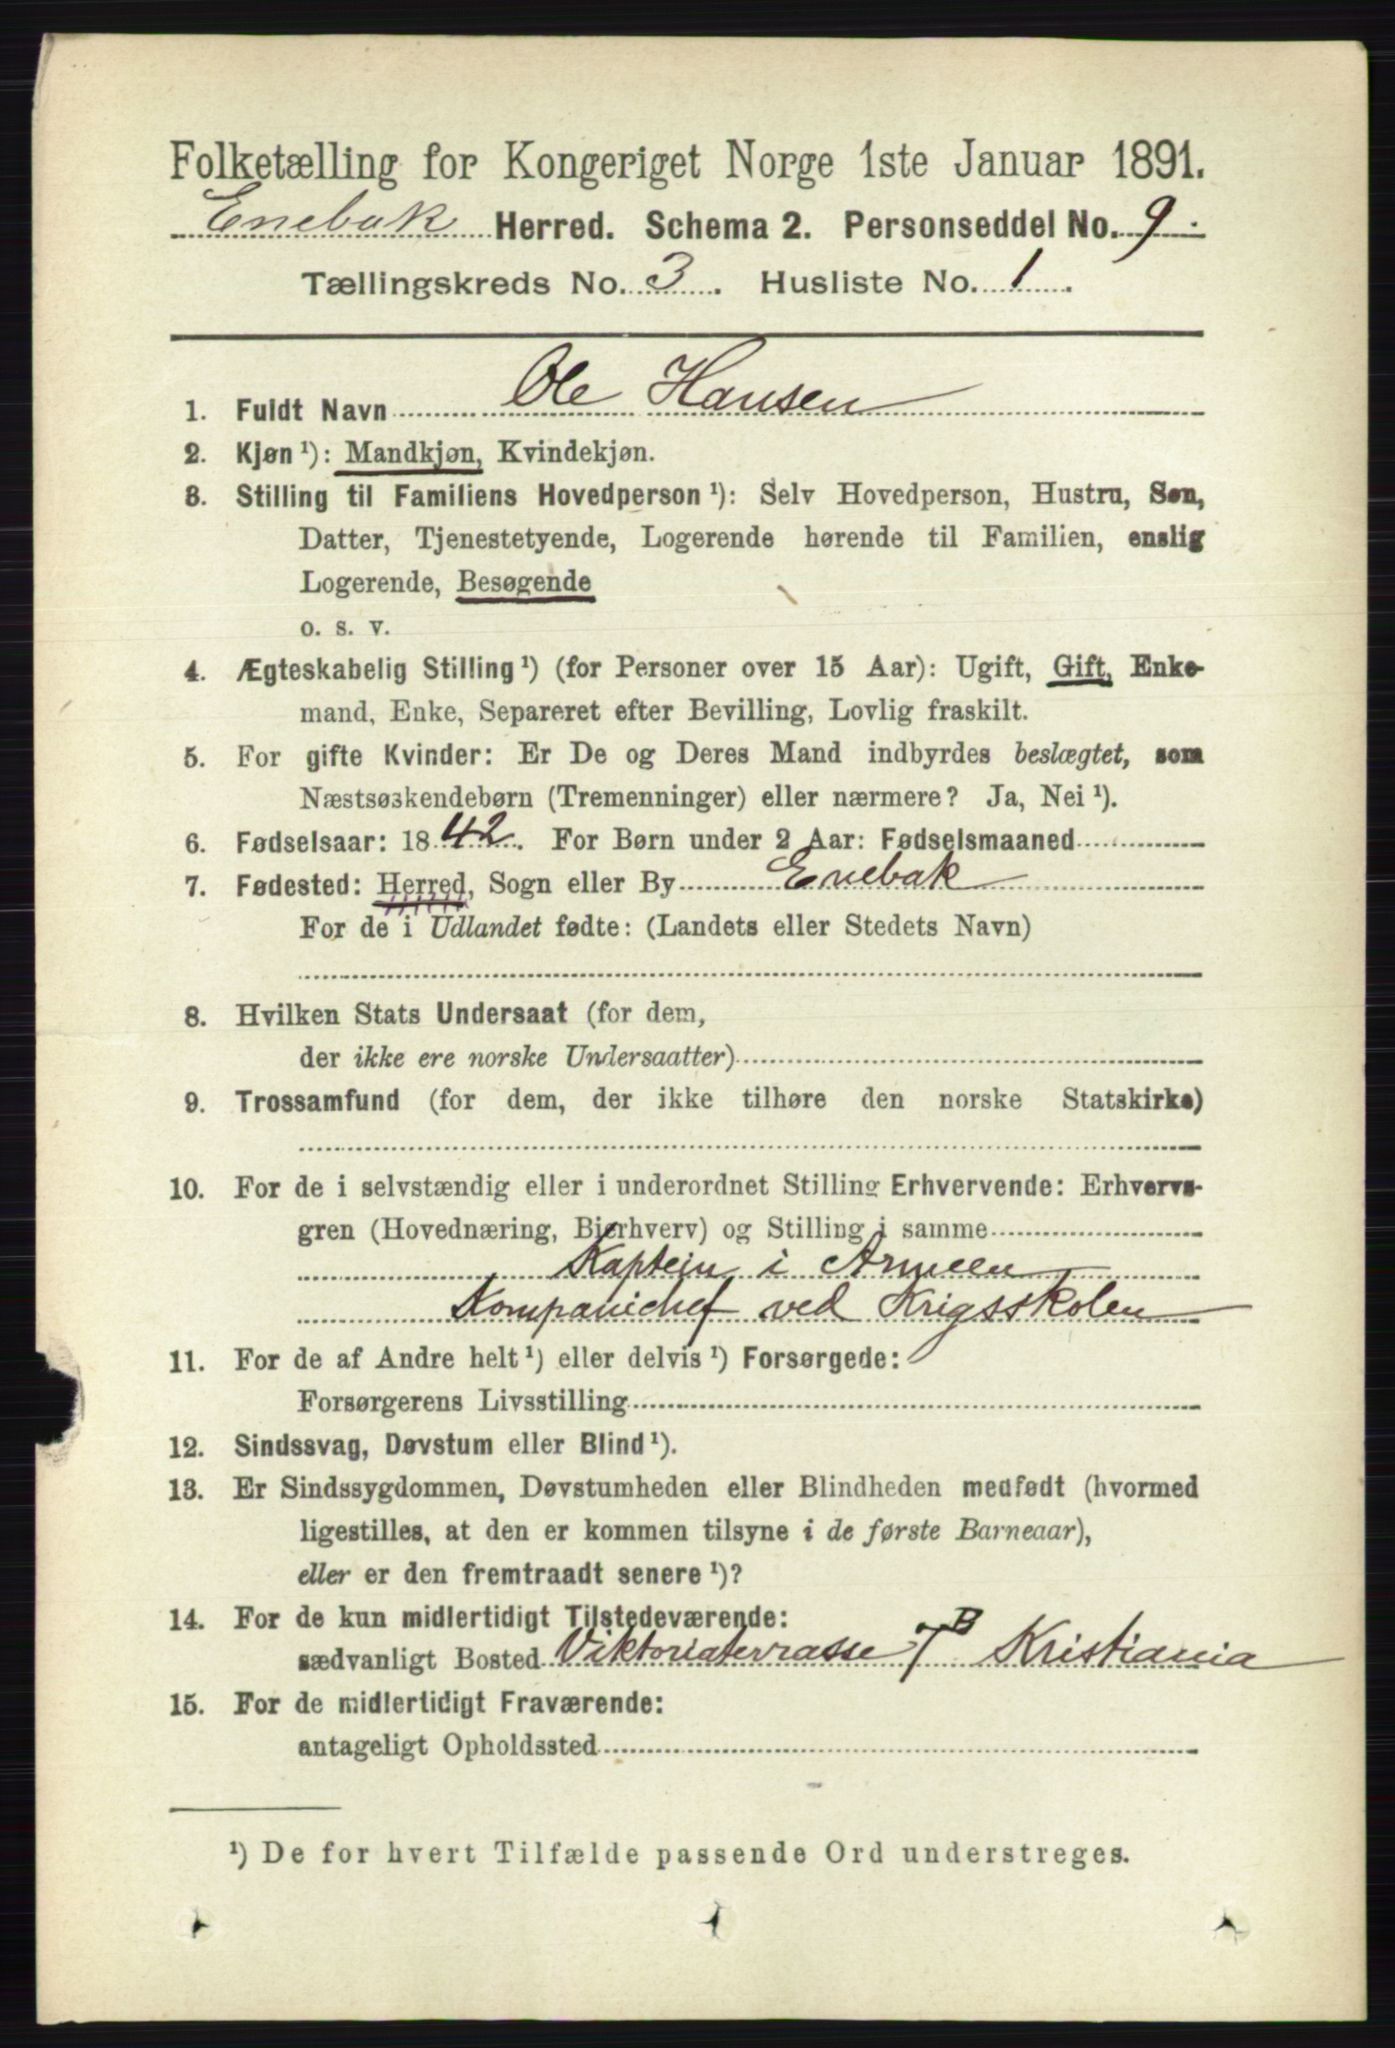 Folketælling for Kongeriget Norge 1ste Januar 1891.
Enebak Herred. Schema 2. Personseddel No. 9.
Tællingskreds No. 3. Husliste No. 1.
1. Fuldt Navn Ole Hansen
2. Kjøn ¹): Mandkjøn, Kvindekjøn.
3. Stilling til Familiens Hovedperson ¹): Selv Hovedperson, Hustru, Søn,
Datter, Tjenestetyende, Logerende hørende til Familien, enslig
Logerende, Besøgende
o. s. v.
4. Ægteskabelig Stilling ¹) (for Personer over 15 Aar): Ugift, Gift, Enke-
mand, Enke, Separeret efter Bevilling, Lovlig fraskilt.
5. For gifte Kvinder: Er De og Deres Mand indbyrdes beslægtet, som
Næstsøskendebørn (Tremenninger) eller nærmere? Ja, Nei ¹).
6. Fødselsaar: 1842. For Børn under 2 Aar: Fødselsmaaned
7. Fødested: Herred, Sogn eller By Enebak
For de i Udlandet fødte: (Landets eller Stedets Navn)
8. Hvilken Stats Undersaat (for dem,
der ikke ere norske Undersaatter)
9. Trossamfund (for dem, der ikke tilhøre den norske Statskirke)
10. For de i selvstændig eller i underordnet Stilling Erhvervende: Erhvervs-
gren (Hovednæring, Bierhverv) og Stilling i samme
Kaptein i Armeen
Kompanichef ved Krigsskolen
11. For de af Andre helt ¹) eller delvis ¹) Forsørgede:
Forsørgerens Livsstilling
12. Sindssvag, Døvstum eller Blind ¹).
13. Er Sindssygdommen, Døvstumheden eller Blindheden medfødt (hvormed
ligestilles, at den er kommen tilsyne i de første Barneaar),
eller er den fremtraadt senere ¹)?
14. For de kun midlertidigt Tilstedeværende:
sædvanligt Bosted Viktoriaterrasse 7B Kristiania
15. For de midlertidigt Fraværende:
antageligt Opholdssted
¹) De for hvert Tilfælde passende Ord understreges.